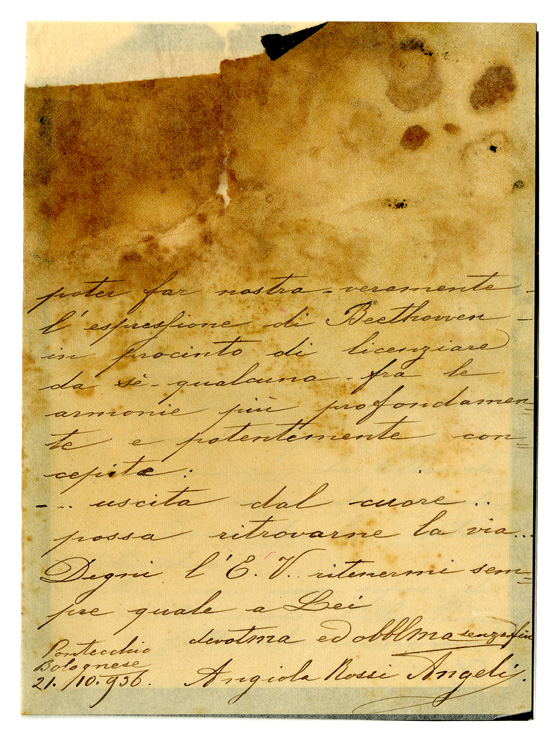 poter far nostra - veramente -
l'espressione di Beethowen -
in procinto di licenziare
da sè - qualcuna - fra le
armonie più profondamen=
te e potentemente con=
cepite:
- .. uscita dal cuore ..
possa ritrovarne la via...
Degni l'E. V. ritenermi sem=
pre quale a Lei
devotma ed obblma senza fine
Pontecchio
Bolognese
21. /10. 936.
Angiola Rossi Angeli.